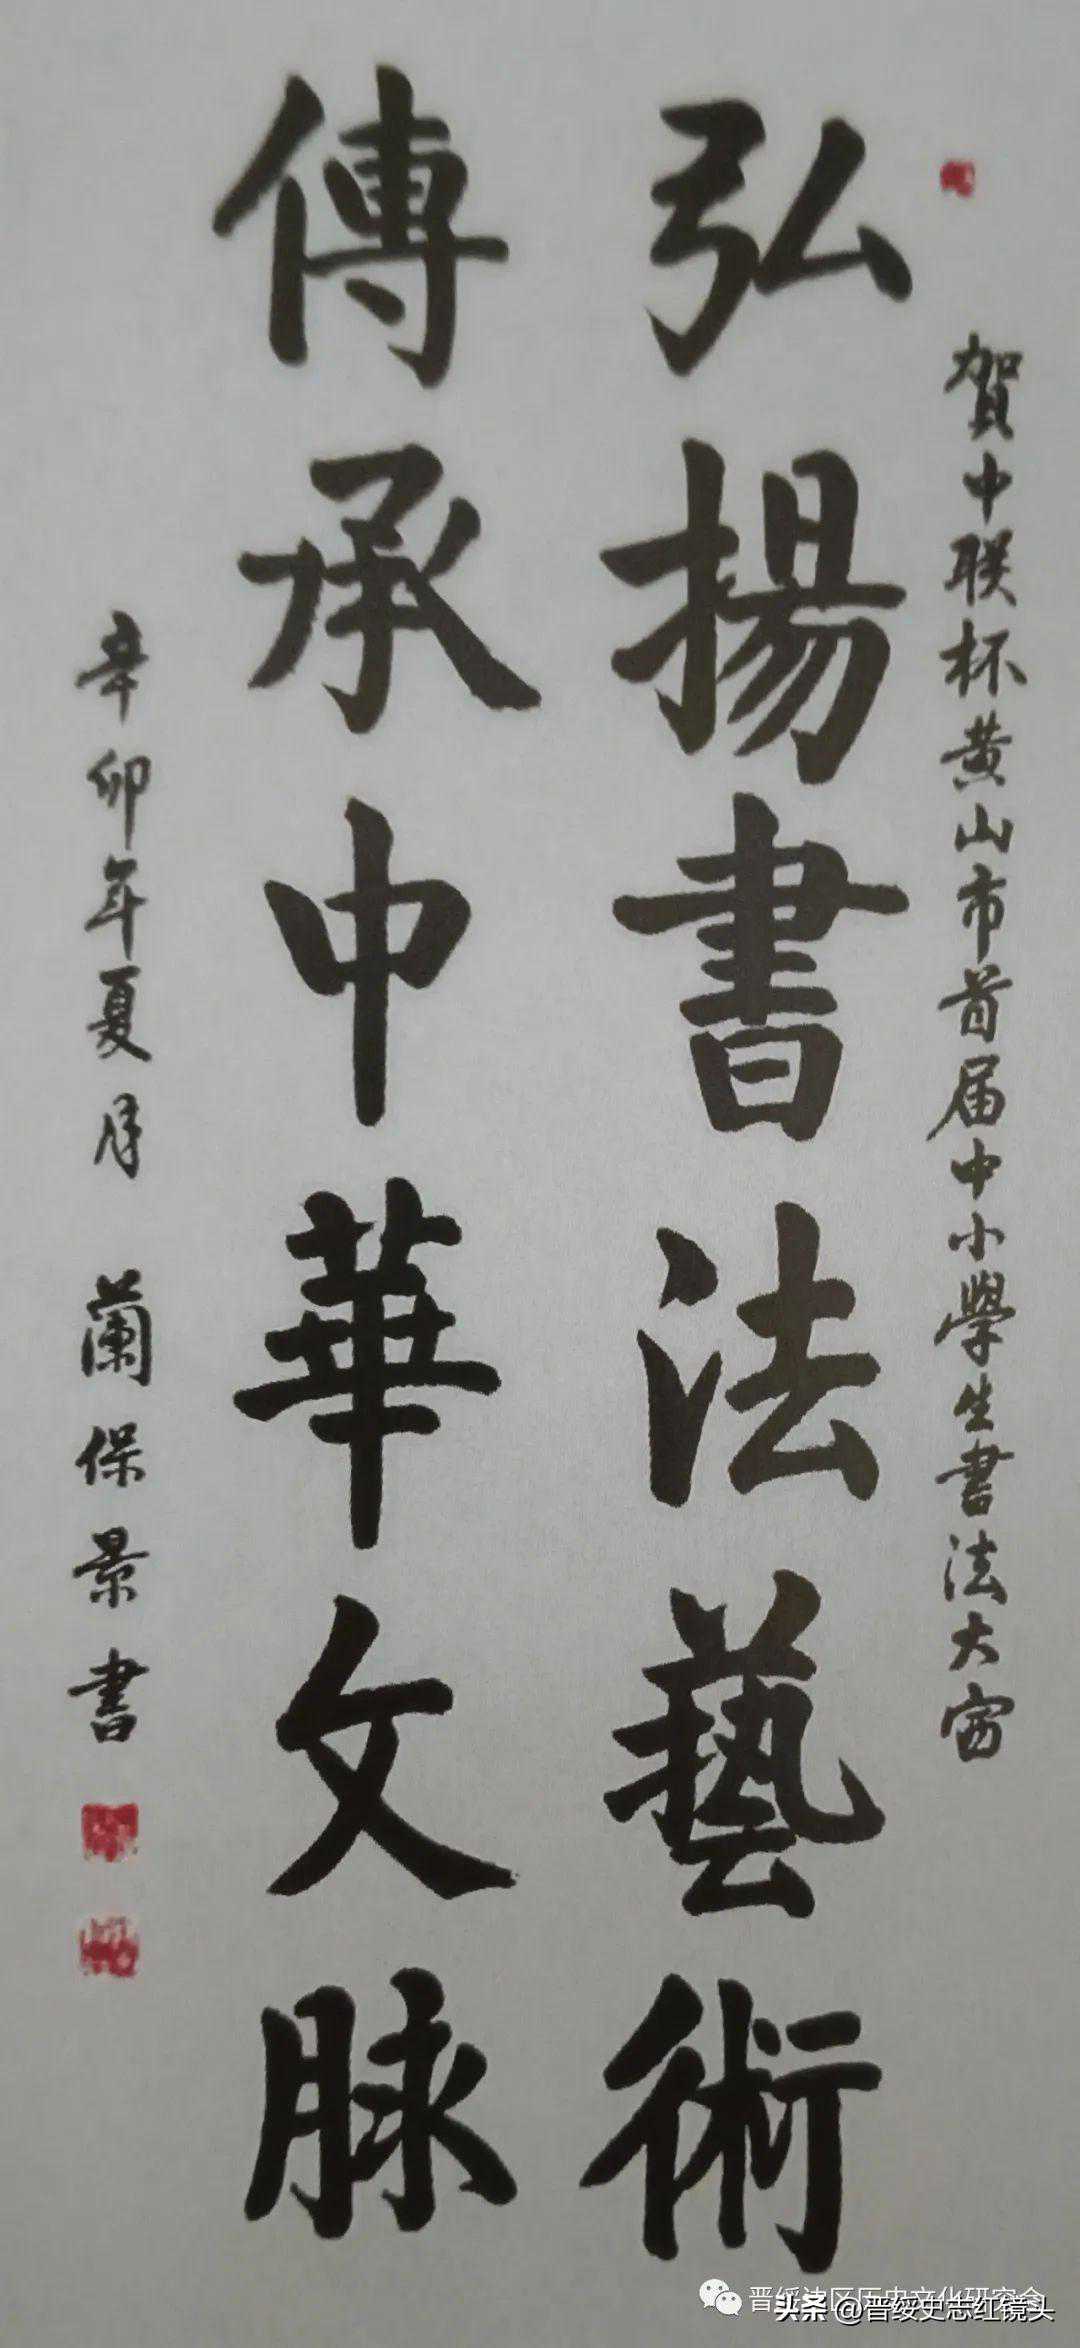 賀中联杯黄山市首届中小學生書法大賽
弘揚書法藝術
傳承中華文脉
辛卯年夏月 蘭保景書
晋绥边区历史文化研究会
头条 @晋绥史志红镜头